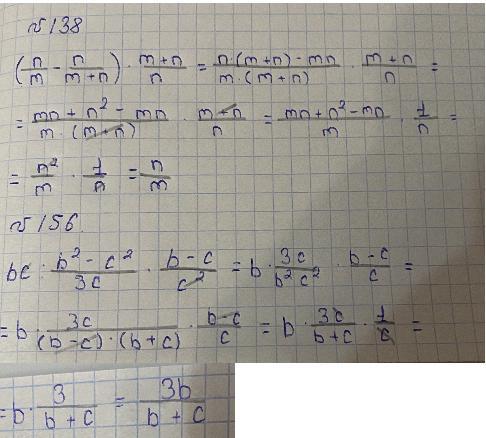 №138
(n/m - n/(m+n)) · (m+n)/n = (n·(m+n)-mn)/(m·(m+n)) · (m+n)/n =
= (mn+n²-mn)/(m·(m+n)) · (m+n)/n = (mn+n²-mn)/m · 1/n =
= n²/m · 1/n = n/m
№156.
bc · (b²-c²)/3c · (b-c)/c² = b · 3c/(b²c²) · (b-c)/c =
= b · 3c/((b-c)·(b+c)) · (b-c)/c = b · 3c/(b+c) · 1/c =
= b · 3/(b+c) = 3b/(b+c)